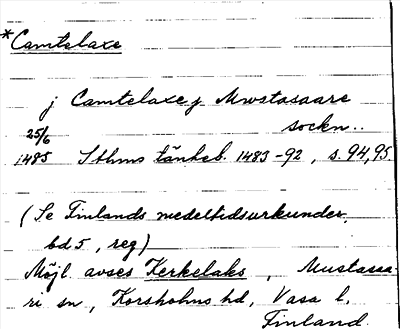 *Camtelaxe
j Camtelaxe j Mwstasaare
sockn..
25/6
1485 Sthms tänkeb. 1483-92, s. 94, 95
(Se Finlands medeltidsurkunder,
bd 5, reg)
Möjl. avses Kerkelaks, Mustasaa-
ri sn, Korsholms hd, Vasa l.
Finland.